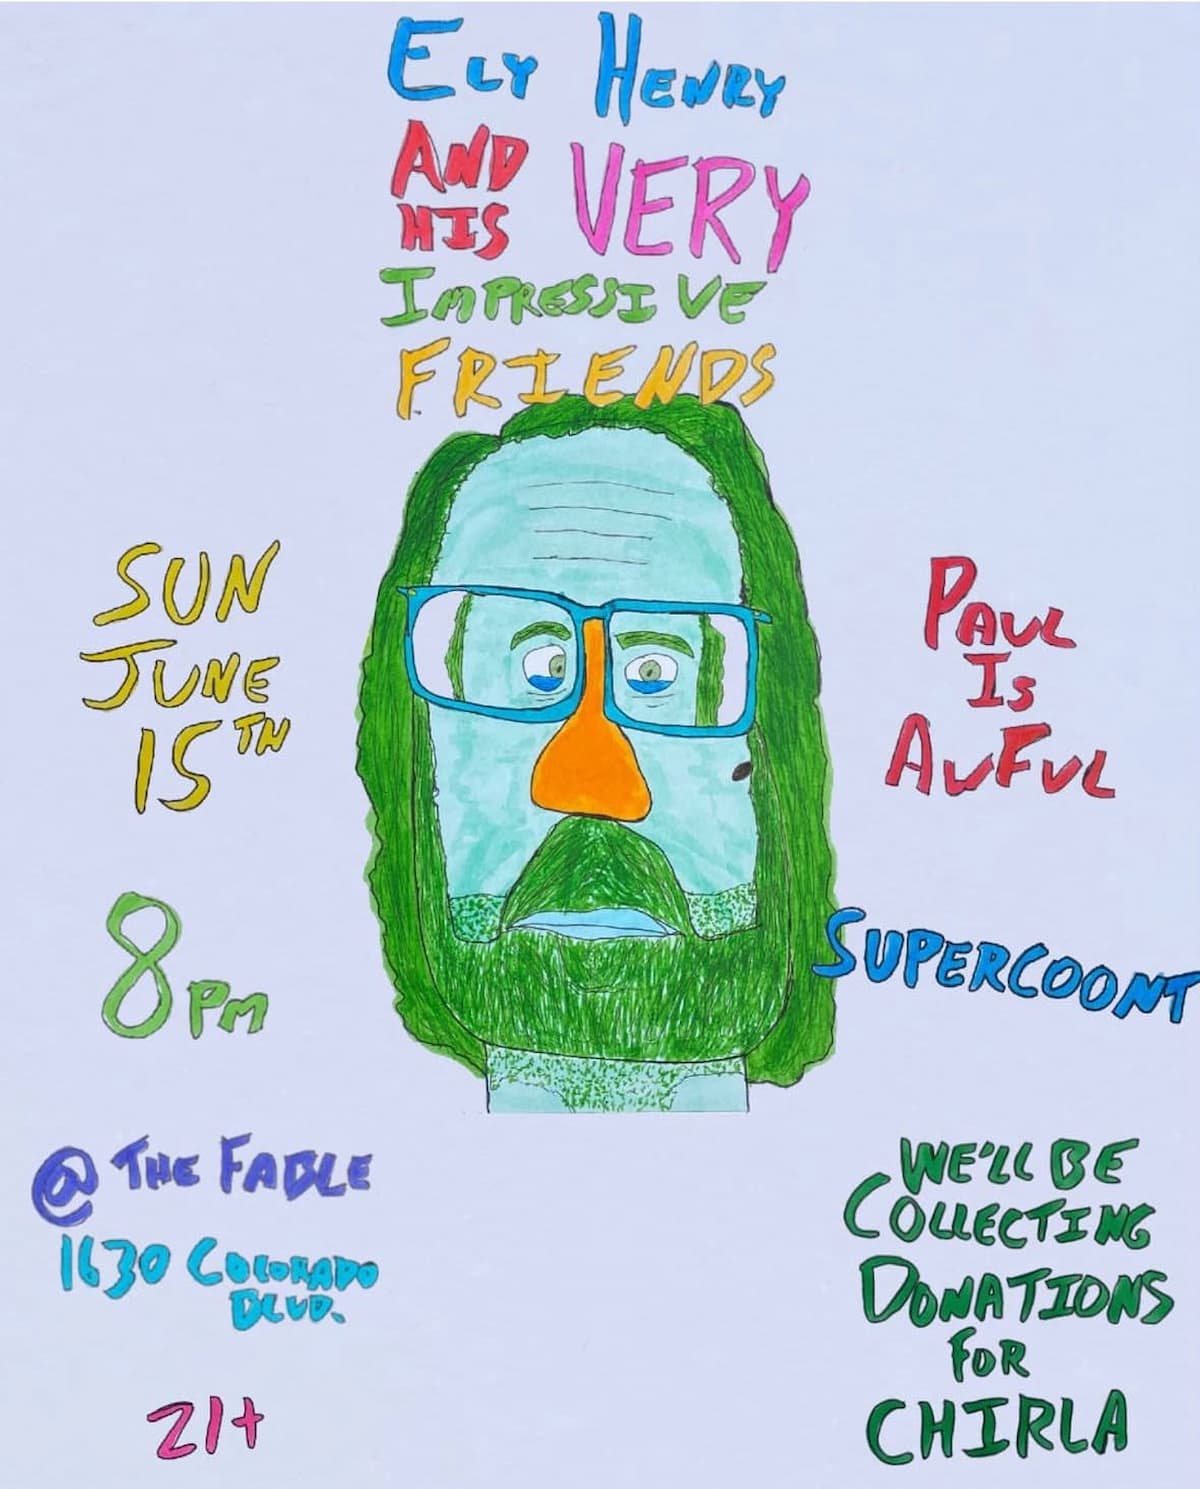 ELY HENRY
AND
HIS
VERY
IMPRESSIVE
FRIENDS
SUN
JUNE
15TH
8PM
@ THE FABLE
1630 COLORADO
BLVD.
21+
PAUL
IS
AWFUL
SUPERCOONT
WE'LL BE
COLLECTING
DONATIONS
FOR
CHIRLA